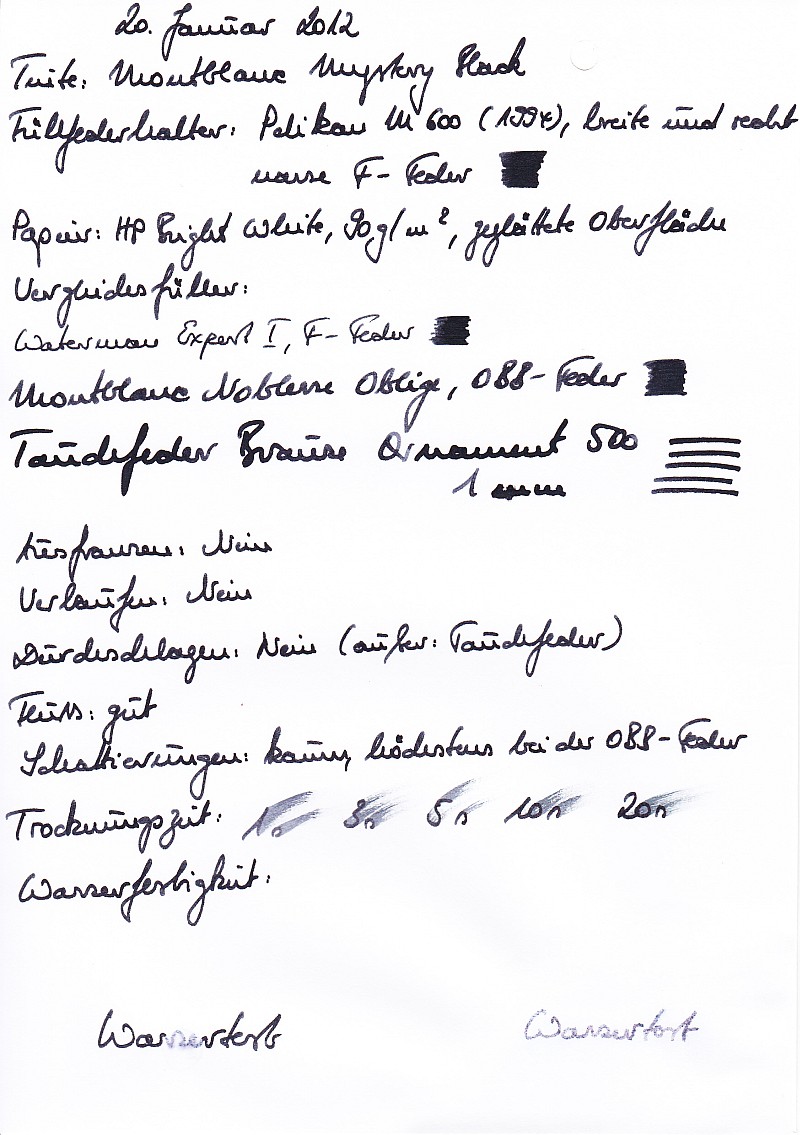 20. Januar 2012
Tinte: Montblanc Mystery Black
Füllfederhalter: Pelikan M 600 (1994), breite und recht
nasse F-Feder
Papier: HP Bright White, 90g/m², geglättete Oberfläche
Vergleichsfüller:
Waterman Expert I, F-Feder
Montblanc Noblesse Oblige, OBB-Feder
Tauchfeder Brause Ornament 500
1 mm
Ausfransen: Nein
Verlaufen: Nein
Durchschlagen: Nein (außer: Tauchfeder)
Fluss: gut
Schattierungen: kaum, höchstens bei der OBB-Feder
Trocknungszeit: 1s 3s 5s 10s 20s
Wasserfestigkeit:
Wassertest Wassertest